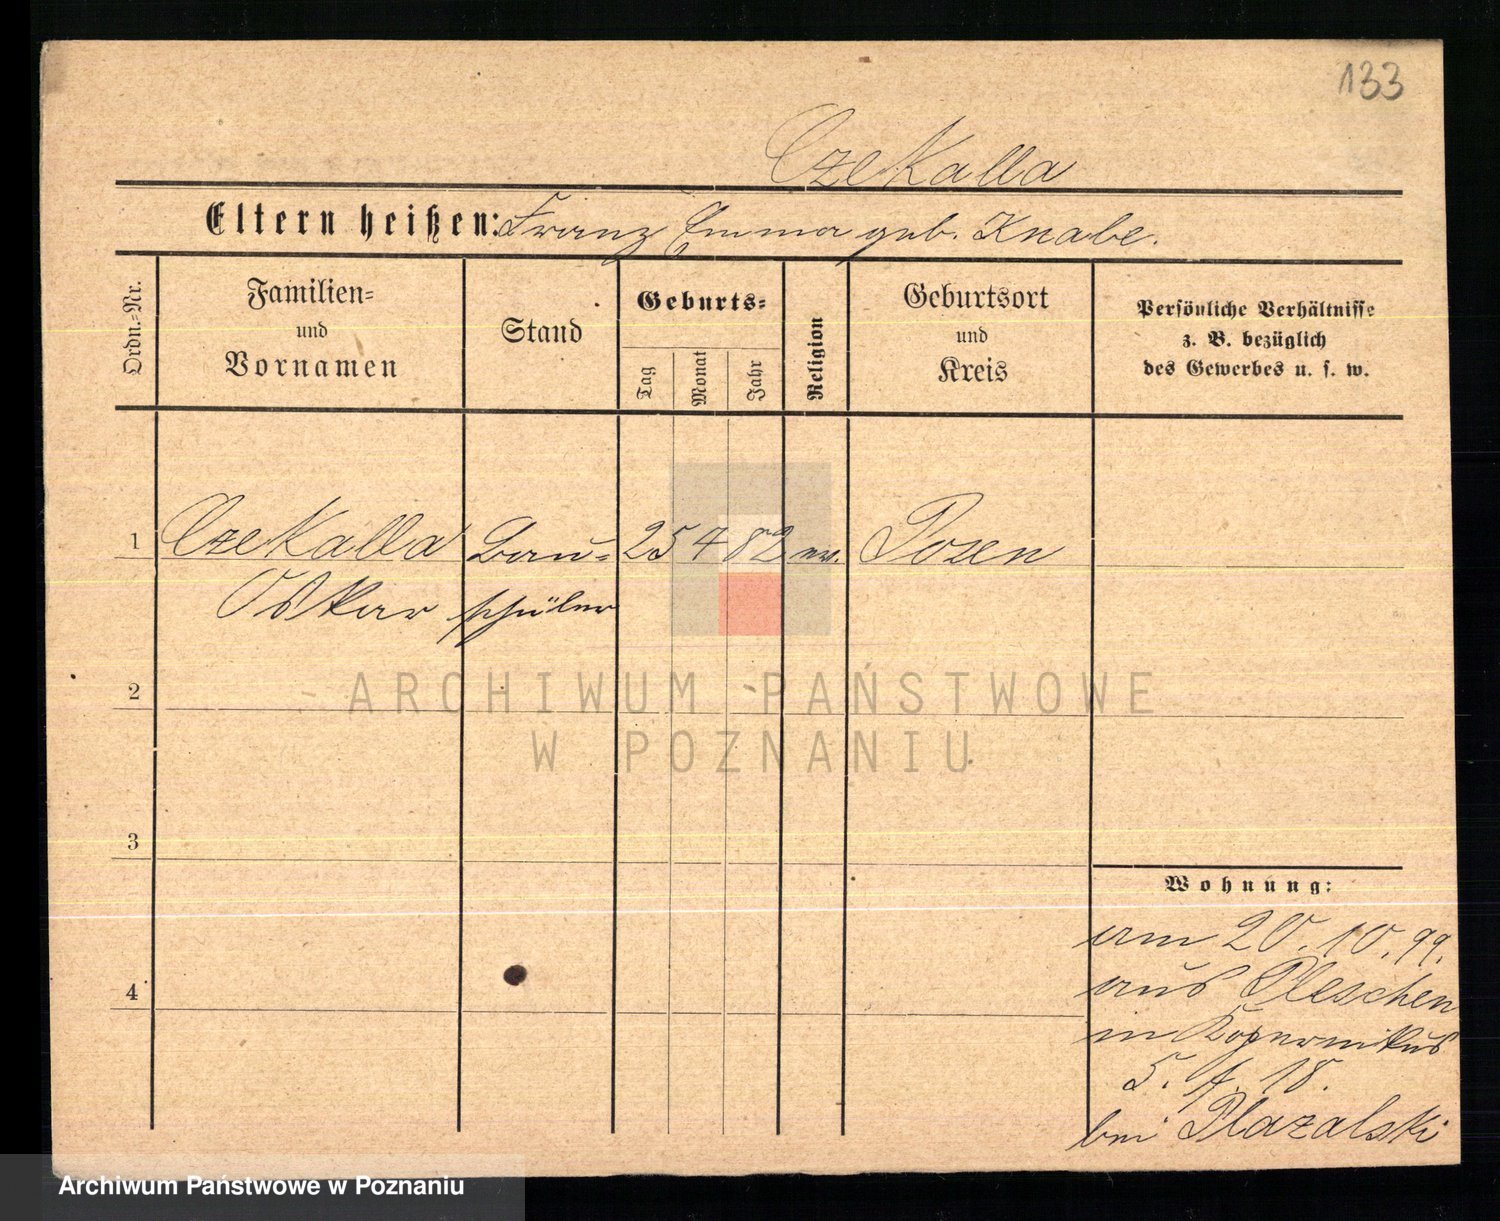 133
Czekalla
Eltern heißen: Franz Emma geb. Knabe.
Ordn.-Nr.
Familien-
und
Vornamen
Stand
Geburts-
Tag
Monat
Jahr
Religion
Geburtsort
und
Kreis
Persönliche Verhältnisse
z. B. bezüglich
des Gewerbes u. s. w.
1 Czekalla Bau- 25 4 82 ev. Posen
Oskar schüler
2
ARCHIWUM PAŃSTWOWE
W POZNANIU
3
Wohnung:
am 20.10.99.
aus Pleschen
in Kopernikus
4
5.
bei Plazalski
Archiwum Państwowe w Poznaniu